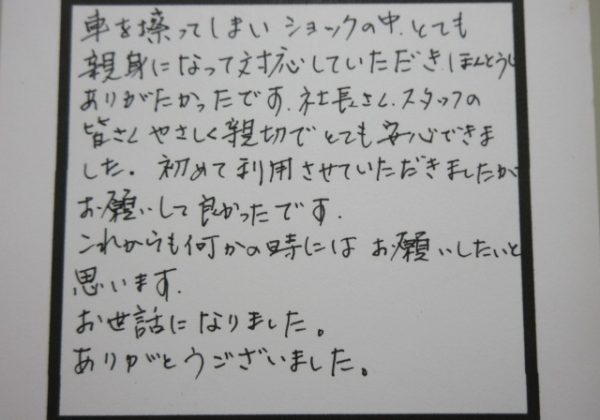 車を擦ってしまい ショックの中、とても
親身になって対応していただき、ほんとうに
ありがたかったです。社長さん、スタッフの
皆さん やさしく親切で とても 安心できま
した。 初めて利用させていただきましたが
お願いして良かったです。
これからも何かの時には お願いしたいと
思います。
お世話になりました。
ありがとうございました。